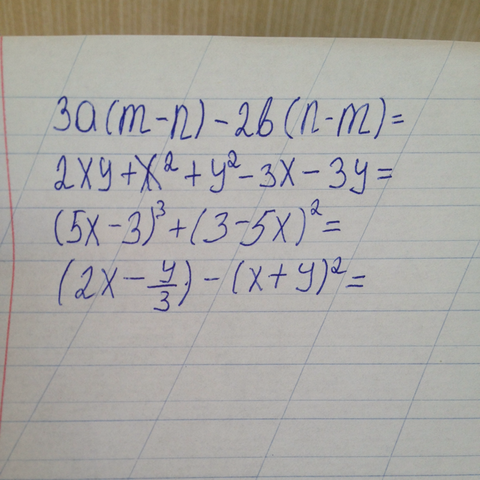 3a(m-n)-2b(n-m)=
2xy+x²+y²-3x-3y=
(5x-3)³+(3-5x)²=
(2x-y/3)-(x+y)²=